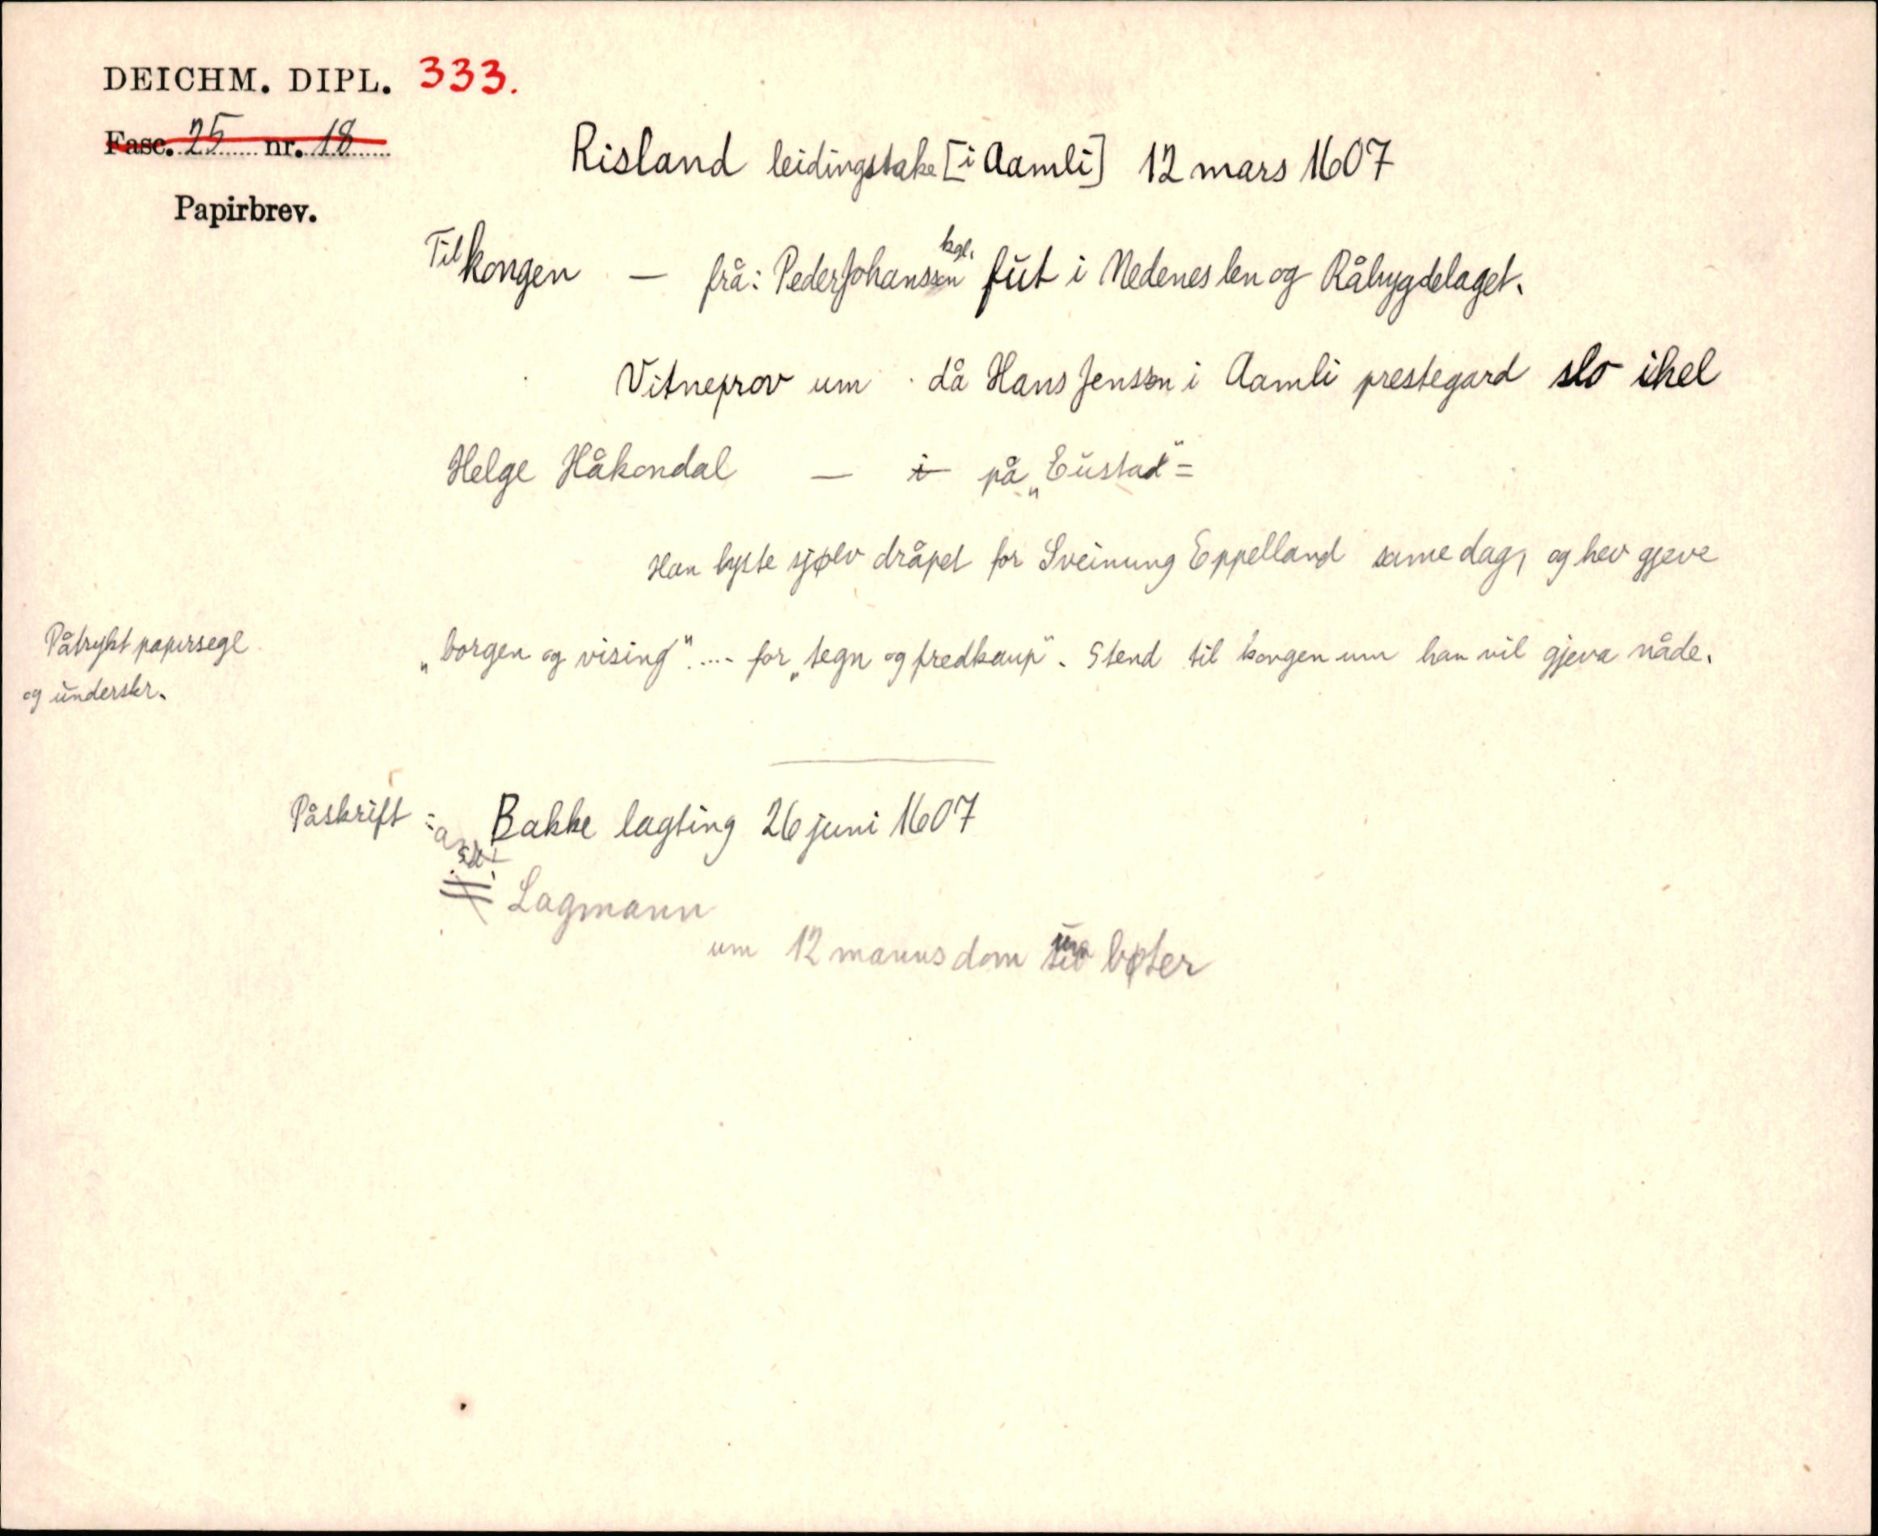 DEICHM. DIPL. 333.
Fasc. 25 nr. 18
Papirbrev.
Risland leidingstake [i Aamli] 12 mars 1607
Til kongen — frå: Peder Johanssen kgl. fut i Nedenes len og Råbygdelaget.
Vitneprov um då Hans Jenssen i Aamli prestegard slo ihel
Helge Håkondal — i på „Eustad" =
Han lyste sjølv dråpet for Sveinung Eppelland same dag, og hev gjeve
„borgen og vising" .... for „tegn og fredkaup". Stend til kongen um han vil gjeva nåde.
Påtrykt papirsegl
og underskr.
Påskrift : a Bakke lagting 26 juni 1607
Lagmann
um 12 manns dom um bøter